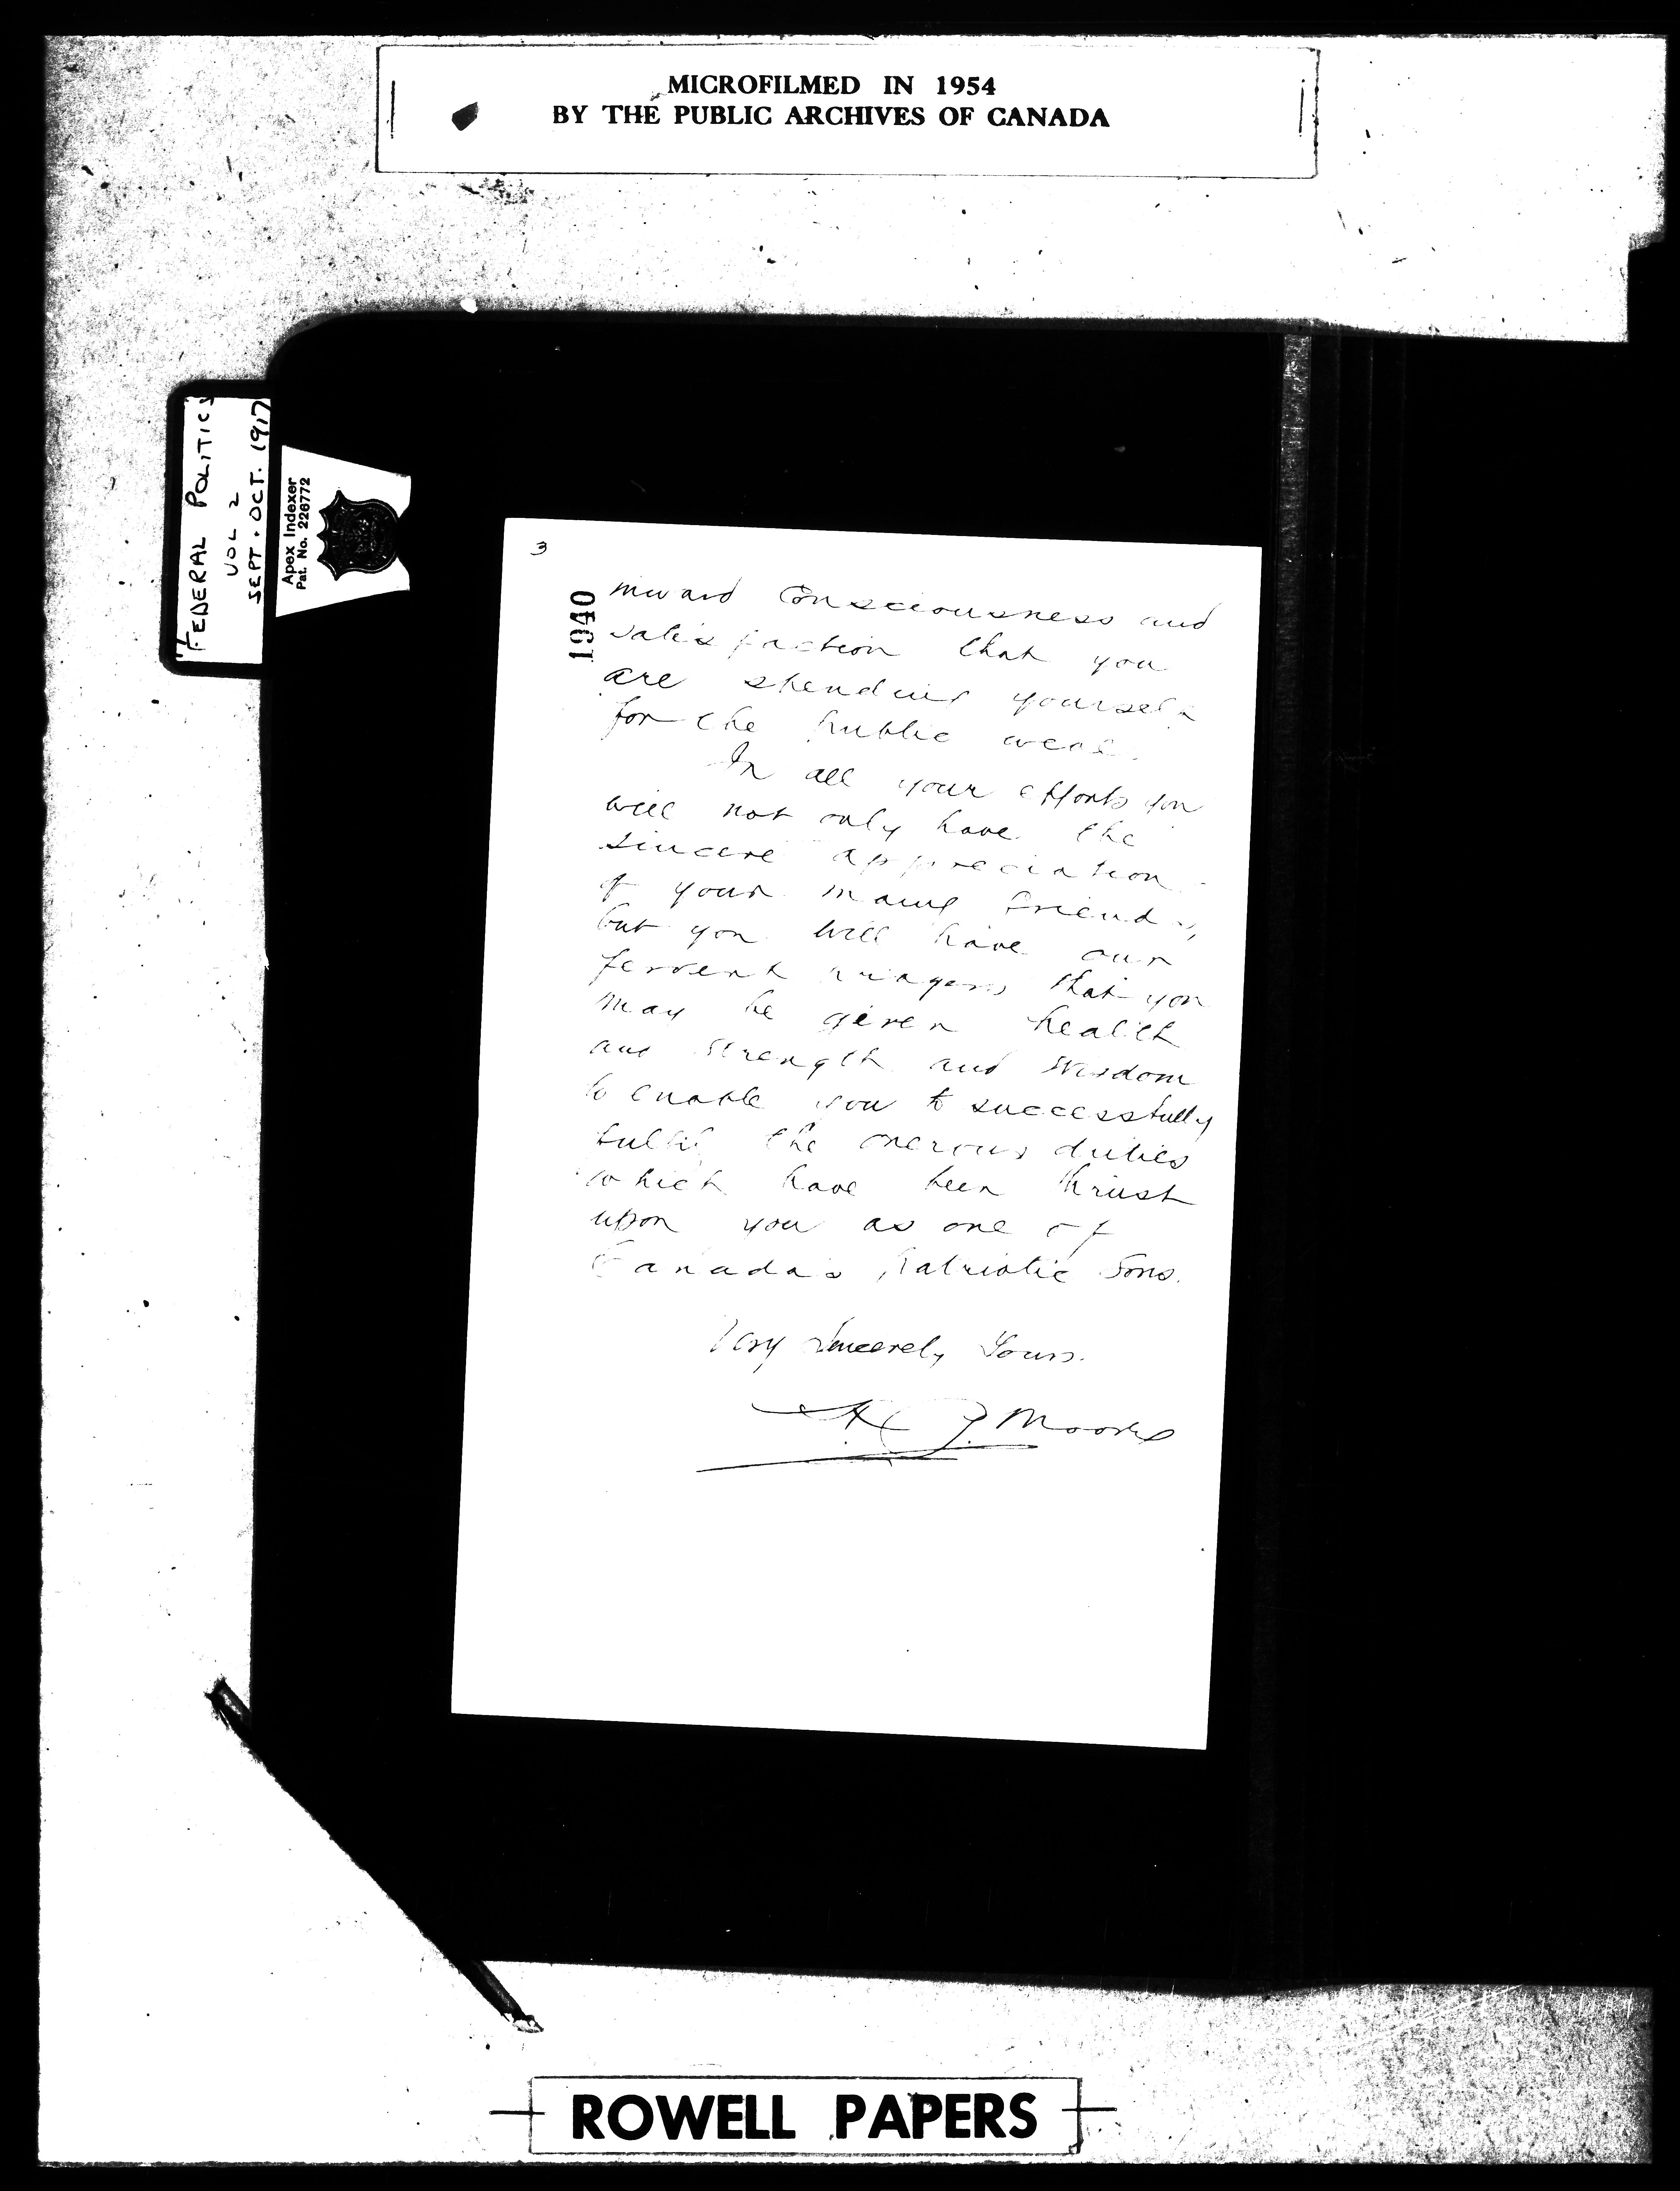 MICROFILMED IN 1954
BY THE PUBLIC ARCHIVES OF CANADA
FEDERAL POLITICS
VOL 2
SEPT. OCT. 1917
Apex Indexer
Pat. No. 226772
3
1940
inward consciousness and
satisfaction that you
are spending yourself
for the public weal.
In all your efforts you
will not only have the
sincere appreciation
of your many friends,
but you will have our
fervent prayers that you
may be given health
and strength and wisdom
to enable you to successfully
fulfil the onerous duties
which have been thrust
upon you as one of
Canadas Patriotic Sons.
Very Sincerely Yours.
Moore
ROWELL PAPERS